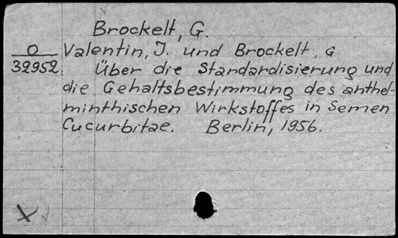 Brockelt, G.
O
32952
Valentin, J. und Brockelt, G
Über die Standardisierung und
die Gehaltsbestimmung des anthel-
minthischen Wirkstoffes in Semen
Cucurbitae. Berlin, 1956.
X